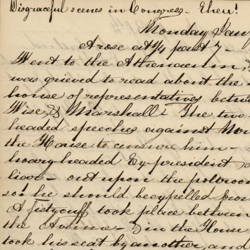 Disgraceful scenes in Congress. Then!
Monday Jan
Arose at ¼ past 7
Went to the Athenaeum
was grieved to read about the
house of representatives betwe
Wise & Marshall. The two
headed speeches against
the House to censure him
hoary headed Ex-president
live out upon the
so he should be expelled from
A fistycuff took place between
the & in the House
took his seat by another an